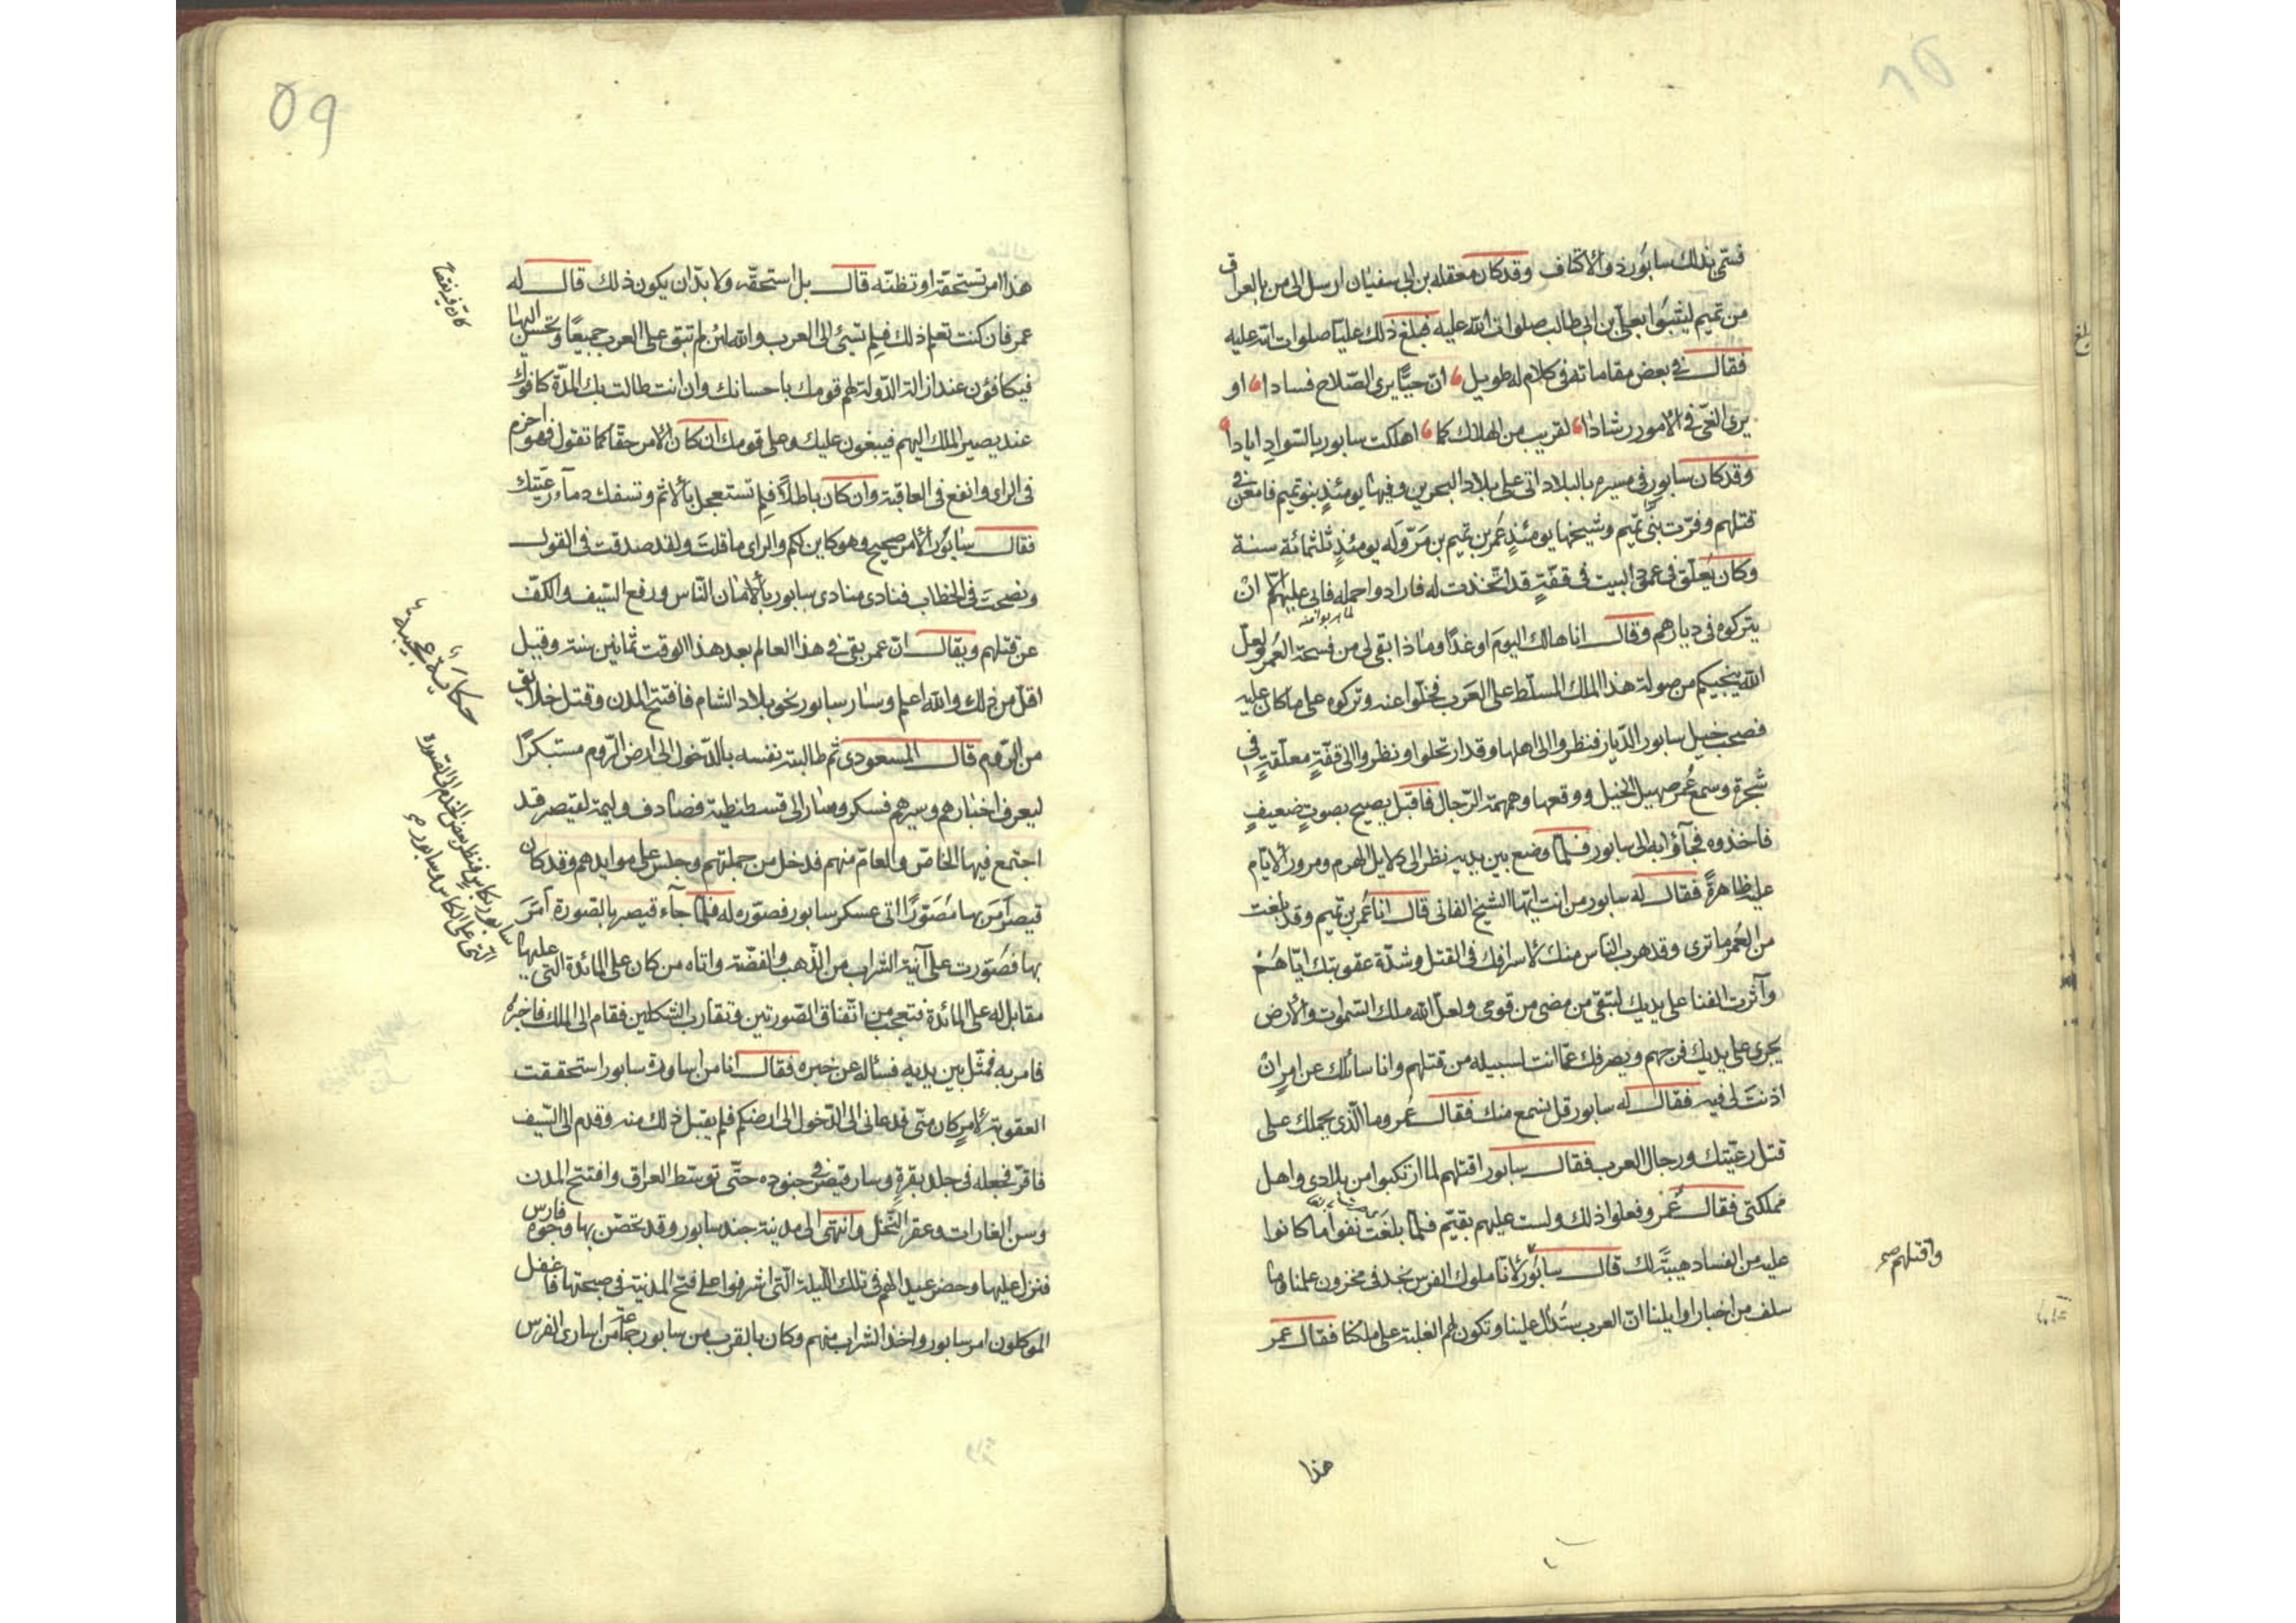 فسمّى بذلك سابور ذو الاكتاف وقد كان معقله بن ابى سفيان ارسل الى من بالعراق
من تميم ليثبوا بعلى بن ابى طالب صلوات الله عليه فبلغ ذلك عليّا صلوات الله عليه
فقال فى بعض مقاماته فى كلام له طويل انّ حيّا يرى الصّلاح فسادا او
يرى الغىّ فى الامور رشادا لقريب من الهلاك كما اهلكت سابور بالسّوادِ ايادا
وقد كان سابور فى مسيره بالبلاد اتى على بلاد البحرين وفيها يومئذٍ بنو تميم فامعن فى
قتلهم وفرّت بنى تميم وشيخها يومئذٍ عُمر بن تميم بن مَرّ وَله يومئذٍ ثلثمائة سنة
وكان يُعلّق فى عمود البيت فى قفّةٍ قد اتّخذت له فارادوا حمله فابى عليهم الّا انْ
يتركوه فى ديارهم وقال انا هالك اليومَ او غدًا وماذا بقى لى من فسحة العُمر ولعلّ
الله ينجيكم من صولة هذا الملك المسلّط على العَرب فخلّوا عنه وتركوه على ما كان عليه
فصبحت خيل سابور الدّيار فنظروا الى اهلها وقد ارتحلوا ونظروا الى قفّةٍ معلّقةٍ فى
شجرة وسمع عُمر صهيل الخيل ووقعها وهمهمة الرّجال فاقبل يصيح بصوتٍ ضعيفٍ
فاخذوه فجآؤا به الى سابور فلمّا وضع بين يديه نظر الى دلايل الهرم ومرور الايّام
عليه ظاهرةً فقال له سابور من انت ايّها الشيخ الفانى قال انا عُمر بن تميم وقد بلغت
من العُمر ما ترى وقد هرب الناس منك لاسرافك فى القتل وشدّة عقوبتك ايّاهُمْ
وآثرت الفنا على يديك لتبقى من مضى من قومى ولعلّ الله ملك السّموات والارض
يجرى على يديك فرجهم ويصرفك عمّا انت لسبيله من قتلهم وانا سائلك عن امرٍ انْ
اذنتَ لى فيه فقال له سابور قل نسمع منك فقال عُمر وما الّذى يحملك على
قتل رعيّتك ورجال العرب فقال سابور اقتلهم لما ارتكبوا من بلادى واهل
مملكتى فقال عُمر وفعلوا ذلك ولست عليهم بقيّم فلمّا بلغت نفوا ما كانوا
عليه من الفساد هيبةً لك قال سابُور لانّا ملوك الفرس نجد فى مخزون علمنا وما
سلف من اخبار اوايلنا انّ العرب ستُدال علينا وتكون لهم الغلبة على ملكنا فقال عمر
واقتلهم صح
هذا
هذا امر تستحقّه او تظنّه قال بل استحقّه ولا بدّ ان يكون ذلك قال له
عمر فان كنت تعلم ذلك فلِم تسئ الى العرب والله لئن لم تبق على العرب جميعًا وتحسن اليها
فيكافؤن عند ازالة الدّولة لهم قومك باحسانك وان انت طالت بك المدّة كافوك
عند يصير الملك اليهم فيبغون عليك وعلى قومك ان كان الامر حقّا كما تقول فهو احزم
فى الراى وانفع فى العاقبة وان كان باطلًا فلِم تستعجل بالاثم وتسفك دمآء رعيّتك
فقال سابور الامر صحيح وهو كاين لكم والراى ما قلتَ ولقد صدقت فى القول
ونصحتَ فى الخطاب فنادى منادى سابور بالامان النّاس ورفع السّيف والكفّ
عن قتلهم ويقال انّ عمر بقى فى هذا العالم بعد هذا الوقت ثمانين سنة وقيل
اقلّ من ذلك والله اعلم وسار سابور نحو بلاد الشام فافتتح المدن وقتل خلايق
من الرّوم قال المسعودى ثم طالبته نفسه بالدّخول الى ارض الرّوم مستبكرًا
ليعرف اخبارهم وسيرهم فسكر وسار الى قسطنطية فصادف وليمة لقيصر قد
اجتمع فيها الخاصّ والعامّ منهم فدخل من جملتهم وجلس على موايدهم وقد كان
قيصر اَمَر بها مُصَوّرًا اتى عسكر سابور فصوّره له فلمّا جآء قيصر بالصّورة اَمَرَ
بها فصُوّرت على آنية الشراب من الذّهب والفضّة واتاه من كان على المائدة التى عليها
مقابل له على المائدة فتعجّب من اتّفاق الصّورتين وتقارب الشكلين فقام الى الملك فاخبره
فامر به فمُثّل بين يديه فسأله عن خبره فقال انا من اساورة سابور استحققت
العقوبة لامرٍ كان منّى فدعانى الى الدّخول الى ارضكم فلم يقبل ذلك منه وقدم الى السّيف
فاقرّ فجعله فى جلد بقرةٍ وسار قيصر فى جنوده حتّى توسّط العراق وافتتح المدن
وسن الغارات وعقر النّخل وانتهى الى مدينة جند سابور وقد تحصّن بها وجوه فارس
فنزل عليها وحضر عيد لهم فى تلك اللّيلة الّتى اشرفوا على فتح المدينة فى صبحتها فاغفل
الموكلون امر سابور واخذ الشراب منهم وكان بالقرب من سابور جماعة من اسارى الفرس
حكاية عجيبة